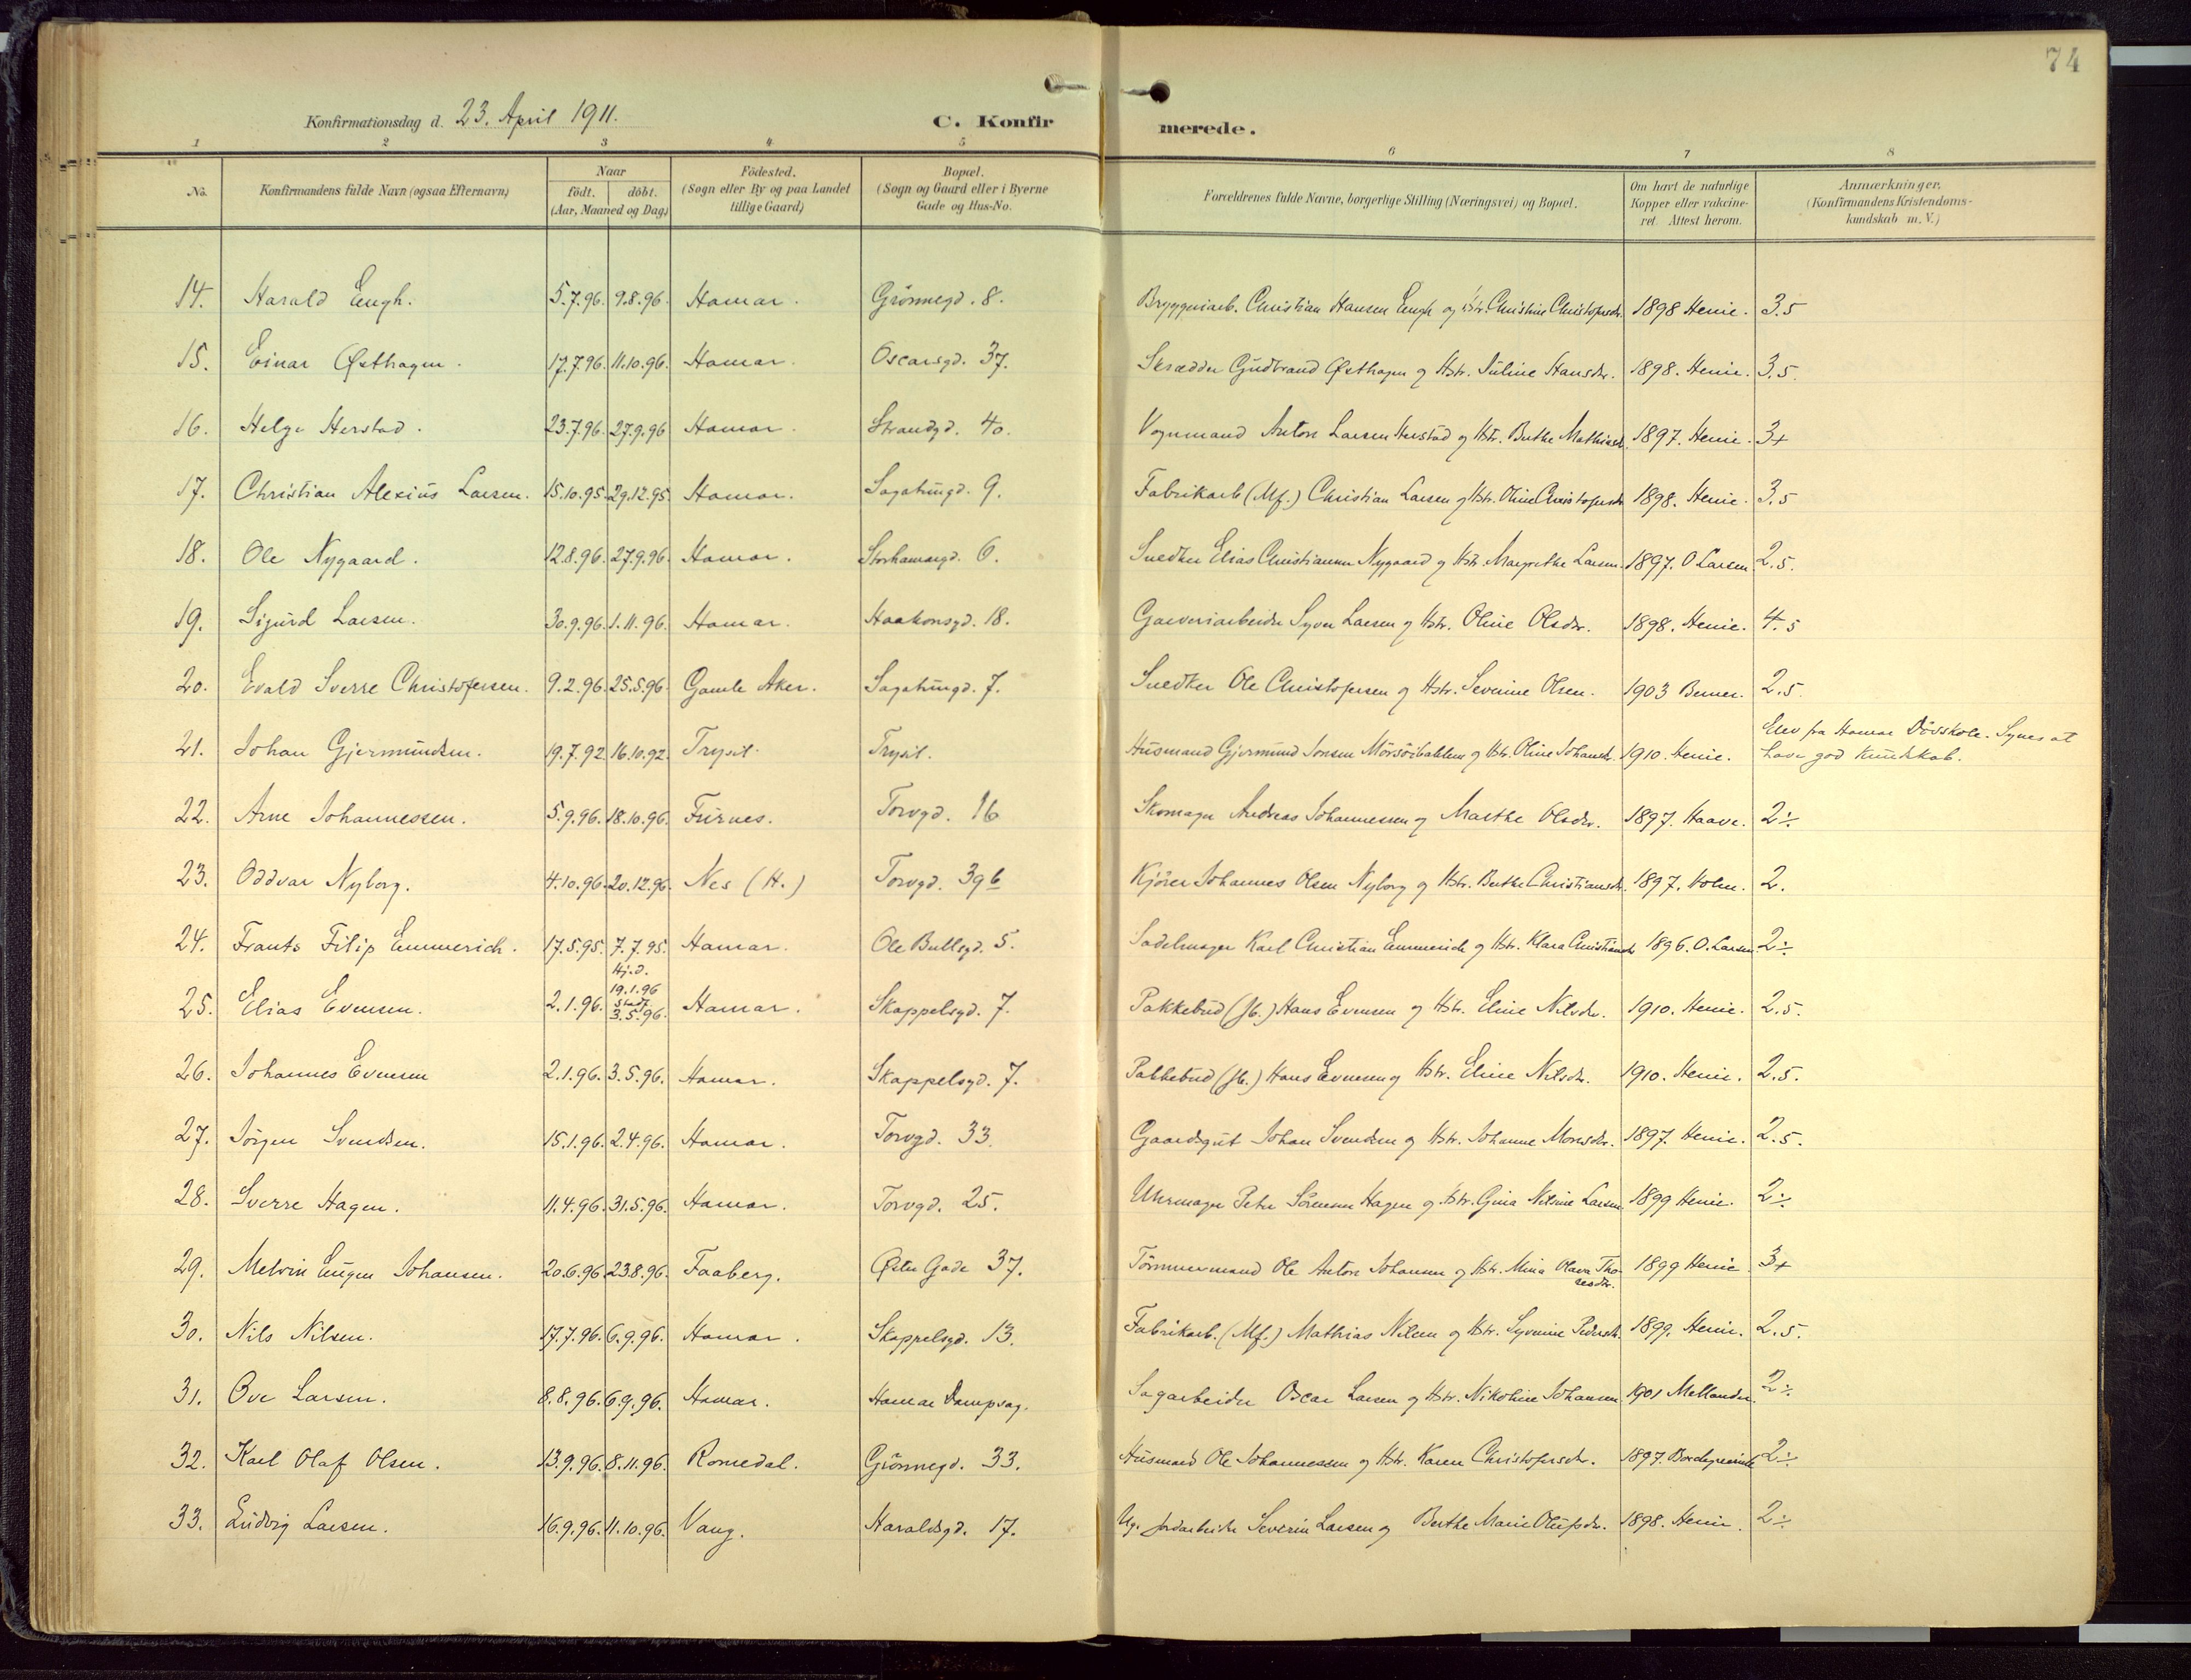 74
Konfirmationsdag d. 23. April 1911.
C. Konfirmerede.
1 2 3 4 5 6 7 8
No. Konfirmandens fulde Navn (ogsaa Efternavn) Naar födt. döbt. (Aar, Maaned og Dag.) Födested. (Sogn eller By og paa Landet tillige Gaard) Bopæl. (Sogn og Gaard eller i Byerne Gade og Hus-No. Forældrenes fulde Navne, borgerlige Stilling (Næringsvei) og Bopæl. Om havt de naturlige Kopper eller vakcineret. Attest herom. Anmærkninger. (Konfirmandens Kristendomskundskab m. V.)
14. Harald Engh. 5.7.96. 9.8.96. Hamar. Grönnegd. 8. Bryggeriarb. Christian Hansen Engh og Hstr. Christine Christofersdr. 1898 Henie. 3.5
15. Einar Østhagen. 17.7.96. 11.10.96. Hamar. Oscarsgd. 37. Skrædder Gudbrand Østhagen og Hstr. Juline Hansdr. 1898. Henie. 3.5.
16. Helge Herstad. 23.7.96. 27.9.96 Hamar. Strandgd. 40. Vognmand Anton Larsen Herstad og Hstr. Berthe Mathisdr. 1897. Henie. 3+
17. Christian Alexius Larsen. 15.10.95. 29.12.95. Hamar. Sagatungd. 9. Fabrikarb (Mf.) Christian Larsen og Hstr. Oline Christofersdr 1898. Henie. 3.5
18. Ole Nygaard. 12.8.96. 27.9.96. Hamar. Storhamargd. 6. Snedker Elias Christiansen Nygaard og Hstr. Margrethe Larsen. 1897. O Larsen. 2.5.
19. Sigurd Larsen. 30.9.96. 1.11.96. Hamar. Haakonsgd. 18. Garveriarbeider Syver Larsen og Hstr. Oline Olsdr. 1898. Henie. 4.5
20. Evald Sverre Christofersen. 9.2.96. 25.5.96. Gamle Aker. Sagatungd. 7. Snedker Ole Christofersen og Hstr. Severine Olsen. 1903 Berner. 2.5.
21. Johan Gjermundsen. 19.7.92. 16.10.92. Trysil. Trysil. Husmand Gjermund Jonsen og Hstr. Oline Johansdr. 1910. Henie. Elev fra Hamar Dövskole. Synes at have god Kundskab.
22. Arne Johannessen. 5.9.96. 18.10.96. Furnes. Torvgd. 16 Skomager Andreas Johannessen og Marthe Olsdr. 1897. Haave. 2÷
23. Oddvar Nyborg. 4.10.96. 20.12.96. Nes (H.) Torvgd. 39b Kjörer Johannes Olsen Nyborg og Hstr. Berthe Christiansdr. 1897. Holm. 2.
24. Frants Filip Emmerich. 17.5.95. 7.7.95. Hamar. Ole Bullsgd. 5. Sadelmager Karl Christian Emmerich og Hstr. Klara Christiansdr 1896. O. Larsen. 2÷
25. Elias Evensen. 2.1.96. Hj.d. 19.1.96 Stadf. 3.5.96. Hamar. Skappelsgd. 7. Pakkebud (Jb.) Hans Evensen og Hstr. Eline Nilsdr. 1910. Henie. 2.5.
26. Johannes Evensen 2.1.96. 3.5.96. Hamar. Skappelsgd. 7. Pakkebud (Jb.) Hans Evensen og Hstr. Eline Nilsdr. 1910. Henie. 2.5.
27. Jörgen Svendsen. 15.1.96. 2.4.96. Hamar. Torvgd. 33. Gaardsgut Johan Svendsen og Hstr. Johanne Monsdr. 1897. Henie. 2.5.
28. Sverre Hagen. 11.4.96. 31.5.96. Hamar. Torvgd. 25. Uhrmager Peter Sörensen Hagen og Hstr. Gina Nilsine Larsen. 1899 Henie. 2÷
29. Melvin Eugen Johansen. 20.6.96. 23.8.96. Faaberg. Øster Gade 37. Tömmermand Ole Anton Johansen og Hstr. Mina Olava Thoresdr. 1899 Henie. 3+
30. Nils Nilsen. 17.7.96. 6.9.96. Hamar. Skappelsgd. 13. Fabrikarb. (Mf.) Mathias Nilsen og Hstr. Syverine Pedersdr. 1899. Henie. 2.5.
31. Ove Larsen. 8.8.96. 6.9.96. Hamar. Hamar Dampsag. Sagarbeider Oscar Larsen og Hstr. Nikoline Johansen 1901 Mellander. 2÷
32. Karl Olaf Olsen. 13.9.96. 8.11.96. Romedal. Grönnegd. 33. Husmand Ole Johannessen og Hstr. Karen Christofersdr. 1897. 2÷
33. Ludvig Larsen. 16.9.96. 11.10.96. Vang. Haraldsgd. 17. Ug. Jordarbeider Severin Larsen og Berthe Marie Olufsdr. 1898. Henie. 2÷